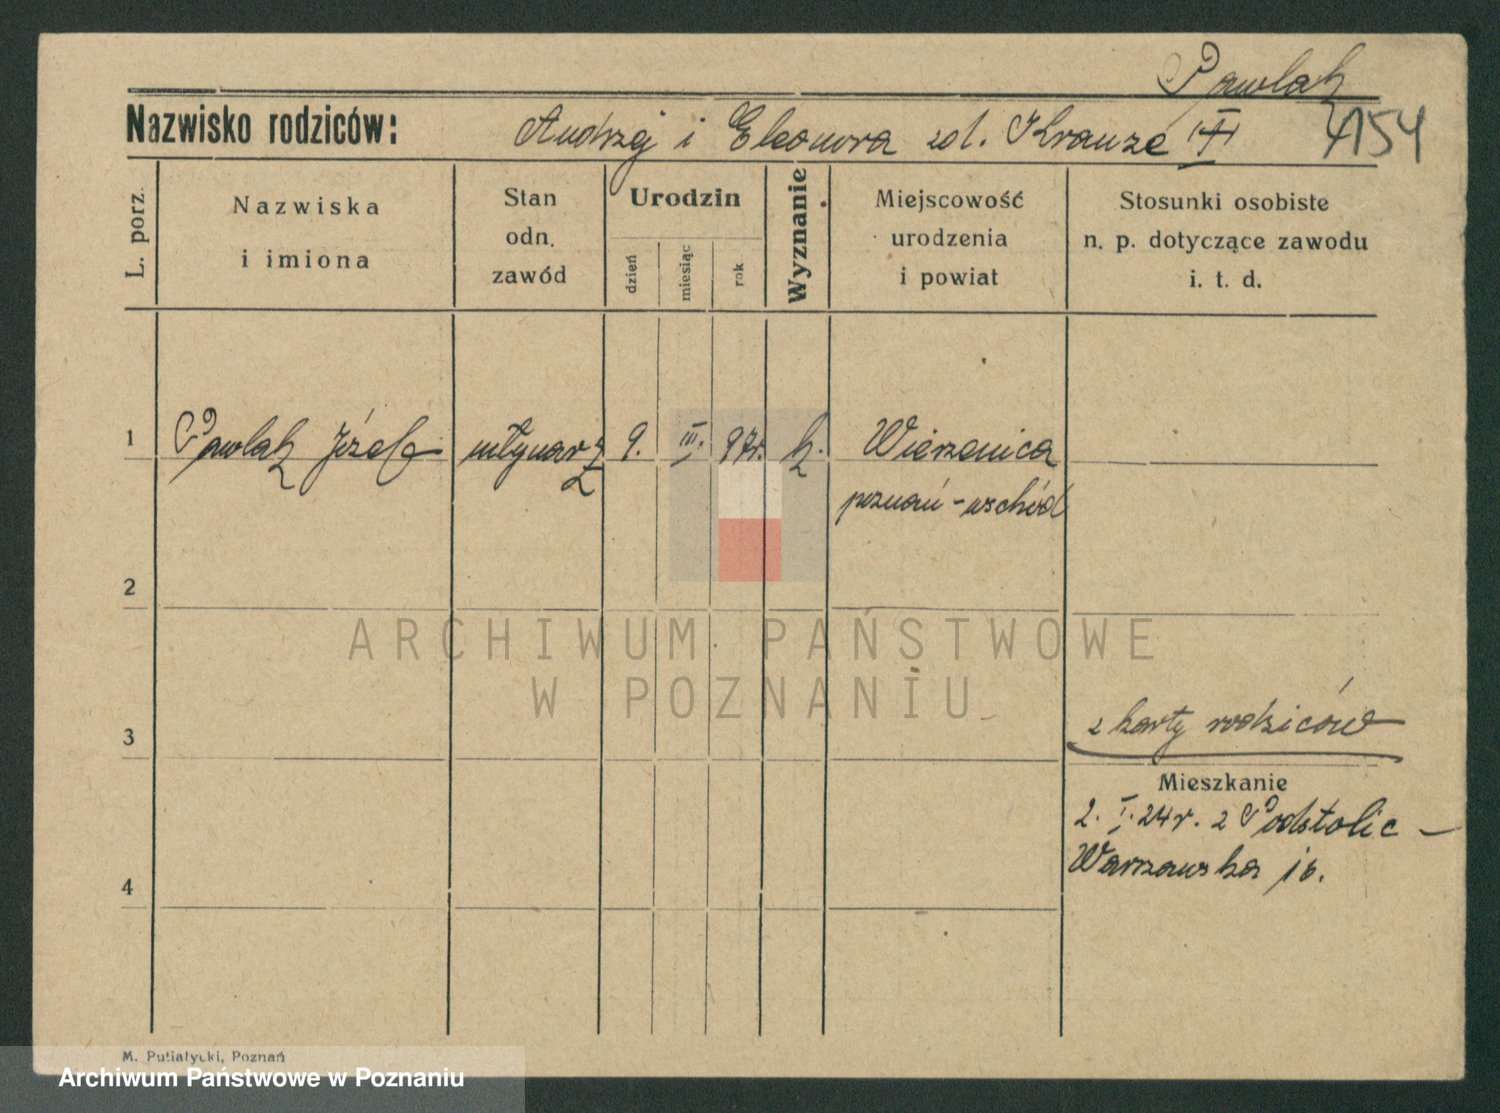 Pawlak
Nazwisko rodziców: Andrzej i Eleonora zd. Krauze
4154
L. porz.
Nazwiska
i imiona
Stan
odn.
zawód
Urodzin
dzień
miesiąc
rok
Wyznanie
Miejscowość
urodzenia
i powiat
Stosunki osobiste
n. p. dotyczące zawodu
i. t. d.
1 Pawlak Józef młynarz 9. III. 97r. k. Wierzenica
poznań-wschód
2
ARCHIWUM PAŃSTWOWE
W POZNANIU
z karty rodziców
3
Mieszkanie
2. I. 24r. z Podstolic –
Warszawska 16.
4
M. Putiatycki, Poznań
Archiwum Państwowe w Poznaniu